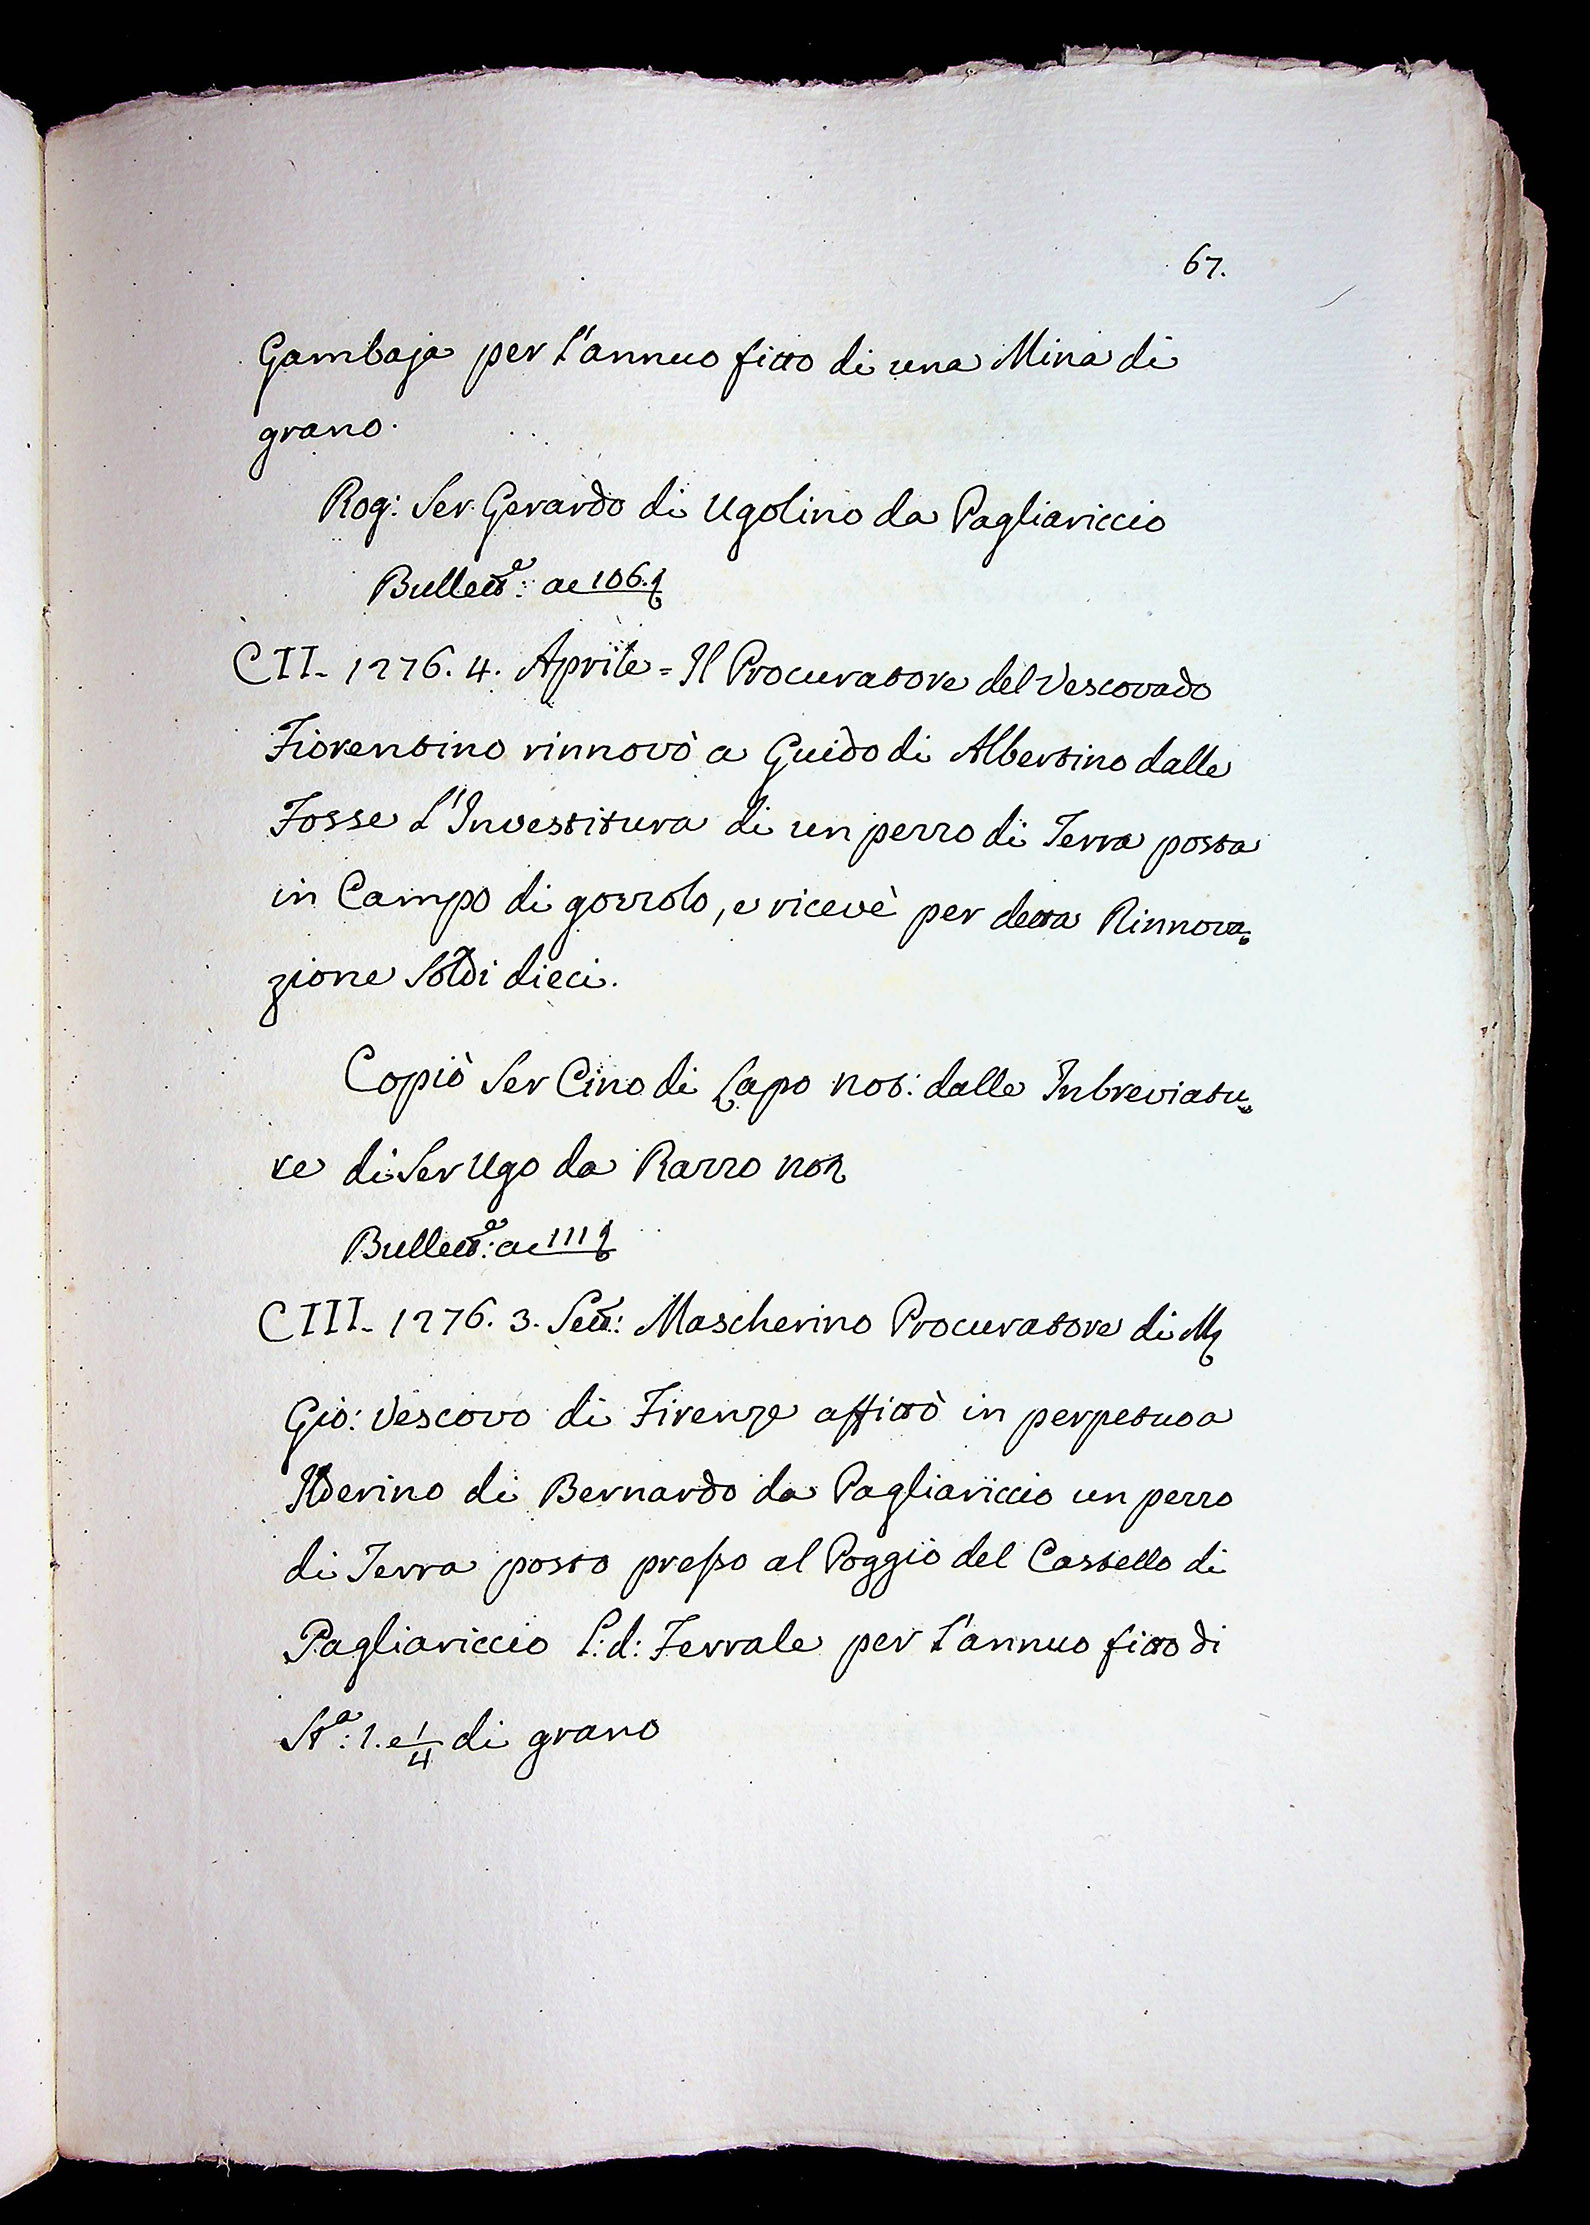 67.
Gambaja per l'annuo fitto di una Mina di
grano.
Rog: Ser Gerardo di Ugolino da Pagliariccio
Bullett.ᵉ: ac 106.
CII. 1276. 4. Aprile = Il Procuratore del Vescovado
Fiorentino rinnovò a Guido di Albertino dalle
Fosse l'Investitura di un pezzo di Terra posta
in Campo di gozzolo, e ricevè per detta Rinnova=
zione Soldi dieci.
Copiò Ser Cino di Lapo not: dalle Inbreviatu=
re di Ser Ugo da Razzo not
Bullett.ᵉ: ac 111
CIII. 1276. 3. Sett: Mascherino Procuratore di M
Gio: Vescovo di Firenze affittò in perpetuo a
Ilderino di Bernardo da Pagliariccio un pezzo
di Terra posto presso al Poggio del Castello di
Pagliariccio l: d: Ferrale per l'annuo fitto di
Stª: 1. e 1/4 di grano